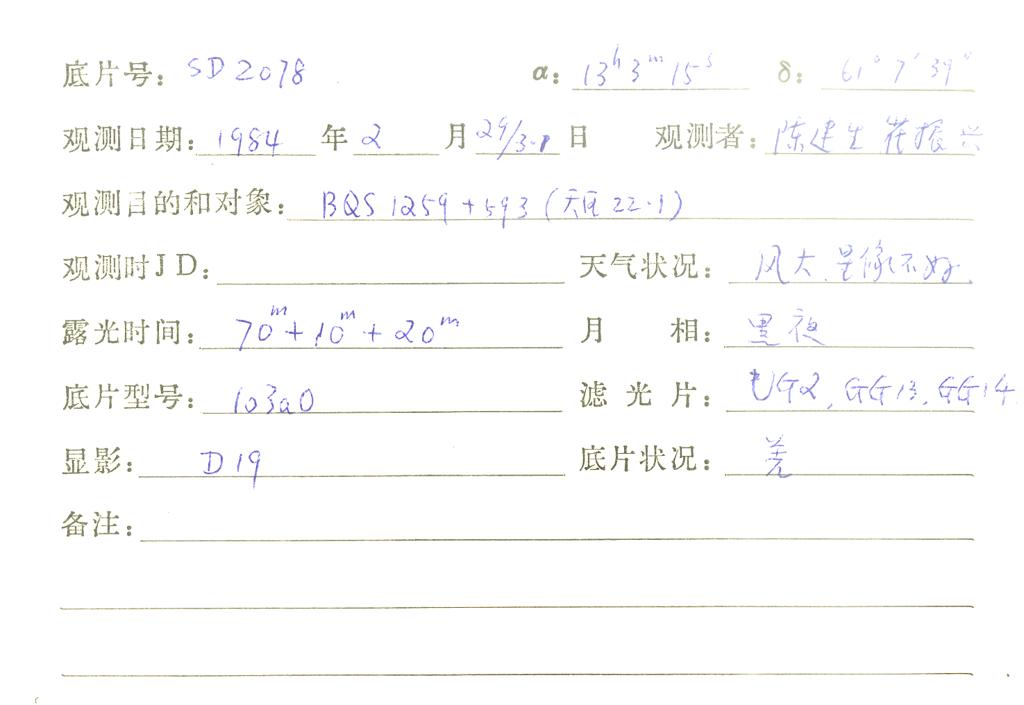 底片号: SD2078 α: 13h3m15s δ: 61°7′39″
观测日期: 1984 年 2 月 29/3.1 日 观测者: 陈建生 振兴
观测目的和对象: BQS 1259+593 (22.1)
观测时JD: 天气状况: 风大.星像不好.
露光时间: 70m+10m+20m 月 相: 黑夜
底片型号: 103aO 滤光片: UG2, GG13, GG14.
显影: D19 底片状况: 差
备注: